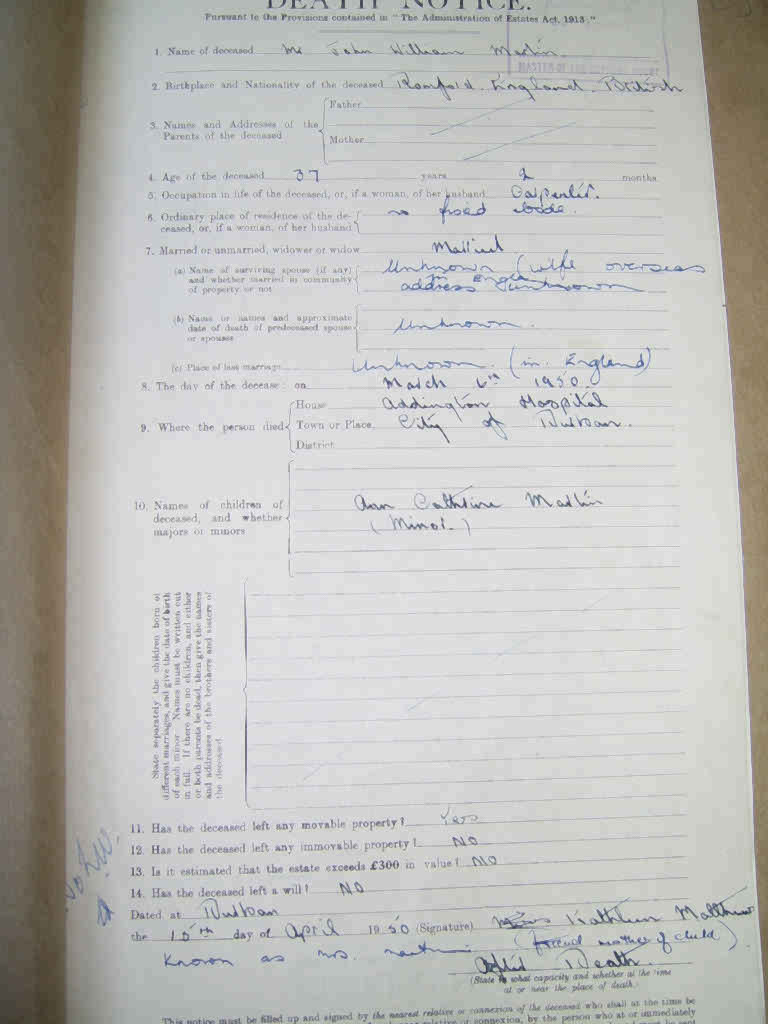 DEATH NOTICE.
Pursuant to the Provisions contained in "The Administration of Estates Act, 1913."
1. Name of deceased Mr John William Martin.
2. Birthplace and Nationality of the deceased England. British
3. Names and Addresses of the Parents of the deceased
Father
Mother
4. Age of the deceased 37 years 2 months
5. Occupation in life of the deceased, or, if a woman, of her husband Carpenter.
6. Ordinary place of residence of the de-
ceased, or, if a woman, of her husband
no fixed abode.
7. Married or unmarried, widower or widow Married
(a) Name of surviving spouse (if any)
and whether married in community
of property or not
Unknown (wife overseas
in England
address unknown
(b) Name or names and approximate
date of death of predeceased spouse
or spouses
Unknown.
(c) Place of last marriage Unknown. (in England)
8. The day of the decease: on March 6th 1950.
9. Where the person died
House Addington Hospital
Town or Place City of Durban.
District
10. Names of children of
deceased, and whether
majors or minors
Ann Cathrine Martin
(Minor.)
State separately the children born of
different marriages, and give the date of birth
of each minor. Names must be written out
in full. If there are no children, and either
or both parents be dead, then give the names
and addresses of the brothers and sisters of
the deceased.
11. Has the deceased left any movable property? Yes
12. Has the deceased left any immovable property? NO
13. Is it estimated that the estate exceeds £300 in value? NO
14. Has the deceased left a will? NO
Dated at Durban
the 15th day of April 1950 (Signature) Kathleen
known as mrs. (friend mother of child)
Death.
(State in what capacity and whether at the time
or near the place of death.
This notice must be filled up and signed by the nearest relative or connexion of the deceased who shall at the time be